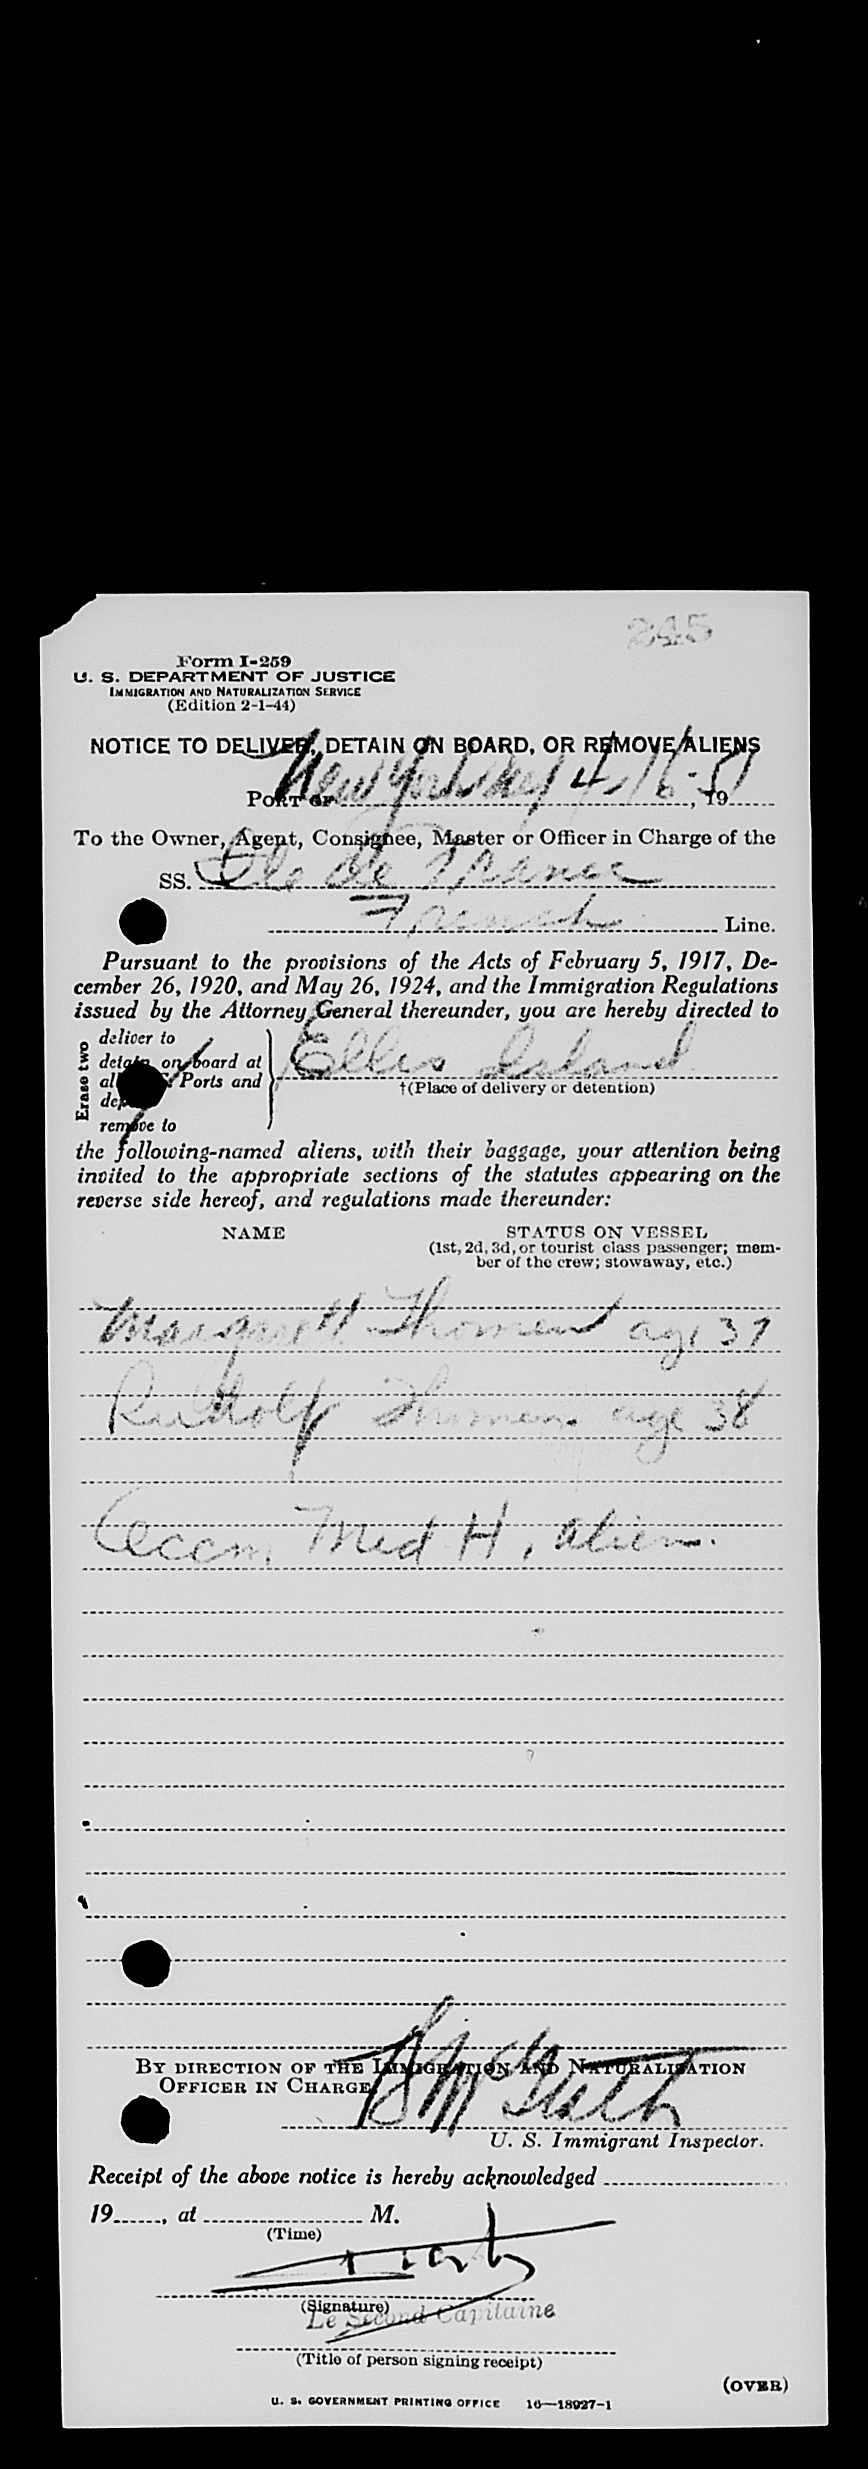 245
Form I-259
U. S. DEPARTMENT OF JUSTICE
IMMIGRATION AND NATURALIZATION SERVICE
(Edition 2-1-44)
NOTICE TO DELIVER, DETAIN ON BOARD, OR REMOVE ALIENS
PORT OF New York, 4-16-51, 19
To the Owner, Agent, Consignee, Master or Officer in Charge of the
SS. Ile de France
French Line.
Pursuant to the provisions of the Acts of February 5, 1917, De-
cember 26, 1920, and May 26, 1924, and the Immigration Regulations
issued by the Attorney General thereunder, you are hereby directed to
Erase two
deliver to
detain on board at
Ports and
remove to
Ellis Island
†(Place of delivery or detention)
the following-named aliens, with their baggage, your attention being
invited to the appropriate sections of the statutes appearing on the
reverse side hereof, and regulations made thereunder:
NAME STATUS ON VESSEL
(1st, 2d, 3d, or tourist class passenger; mem-
ber of the crew; stowaway, etc.)
Thomen age 37
Rudolf Thomen age 38
Accm. Med H, alien.
BY DIRECTION OF THE IMMIGRATION AND NATURALIZATION
OFFICER IN CHARGE
U. S. Immigrant Inspector.
Receipt of the above notice is hereby acknowledged
19, at M.
(Time)
(Signature)
Le Second Capitaine
(Title of person signing receipt)
(OVER)
U. S. GOVERNMENT PRINTING OFFICE 16—18927-1